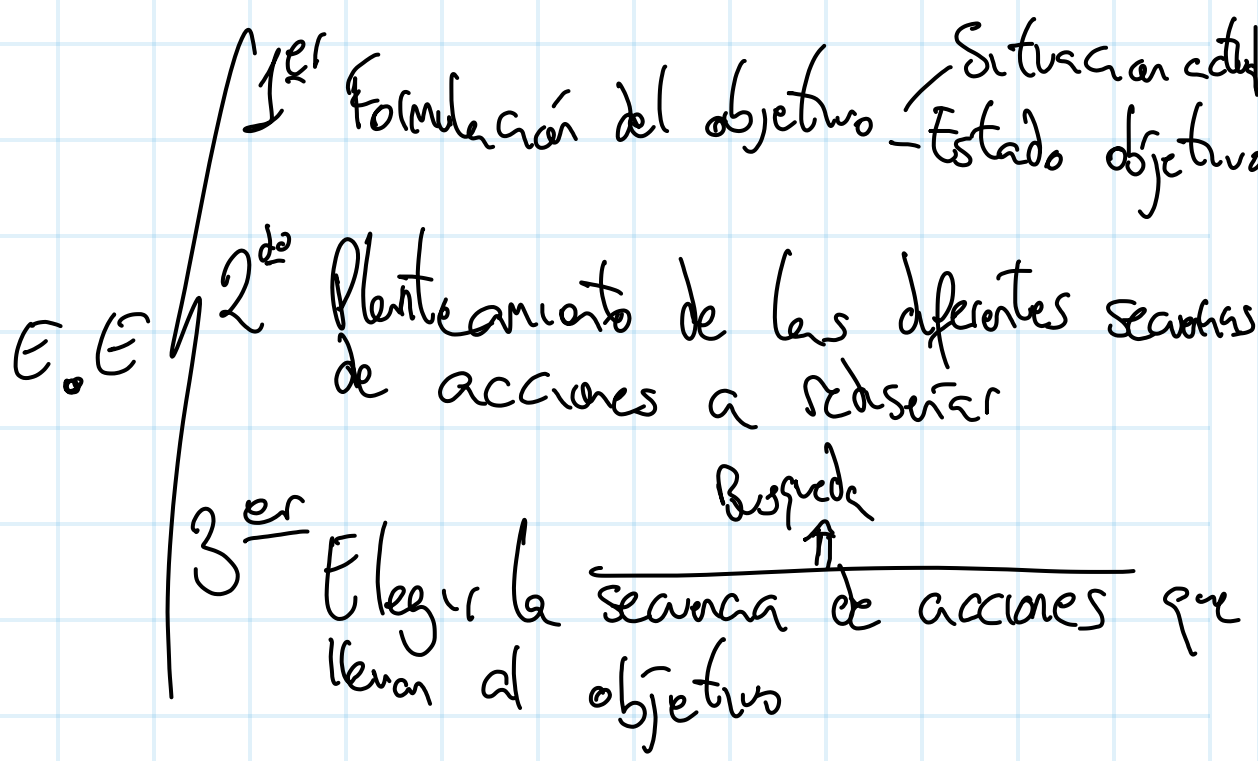 1er Formulación del objetivo
Situacion actu
Estado objetivo
E.E
2do Planteamiento de las diferentes secuencias
de acciones a rediseñar
Busqueda
⇑
3er Elegir la secuencia de acciones que
llevan al objetivo